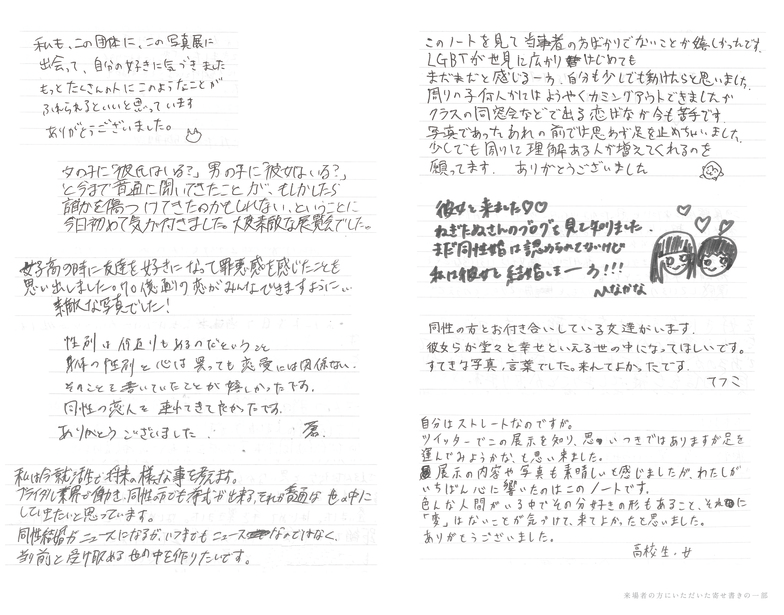 私も、この団体に、この写真展に
出会って、自分の好きに気づきました
もっとたくさんの人にこのようなことが
ふれられるといいと思っています
ありがとうございました。
女の子に「彼氏はいる?」男の子に「彼女はいる?」
と今まで普通に聞いてきたことが、もしかしたら
誰かを傷つけてきたのかもしれない、ということに
今日初めて気が付きました。大変素敵な展覧会でした。
女子高の時に友達を好きになって罪悪感を感じたことを
思い出しました。
恋がみんなできますように
素敵な写真でした!
性別は何通りもあるのだということ
身体の性別と心は異っても恋愛には関係ない。
そのことを書いていたことが嬉しかったです。
同性の恋人を連れてきてたかったです。
ありがとうございました
私は今就活生で将来の様な事を考えます。
ブライダル業界で働き、同性の方でも挙式が出来る、それが普通な世の中に
していきたいと思っています。
同性結婚がニュースになるが、いつまでもニュースなんかではなく、
当り前と受け取める世の中を作りたいです。
このノートを見て当事者の方ばかりでないことが嬉しかったです。
LGBTが世見に広がりはじめても
まだまだと感じる一方、自分も少しでも動けたらと思いました。
周りの子何人かにはようやくカミングアウトできましたが
クラスの同窓会などで出る恋ばなが今も苦手です。
写真であったあれの前では思わず足を止めちゃいました。
少しでも周りに理解ある人が増えてくれるのを
願ってます。 ありがとうございました
彼女と来ました♡♡
ねぎたぬさんのブログを見て知りました。
まだ同性婚は認められてないけど
私は彼女と結婚しまーす!!!
同性の方とお付き合いしている友達がいます。
彼女らが堂々と幸せといえる世の中になってほしいです。
すてきな写真、言葉でした。来んてよかったです。
てフミ
自分はストレートなのですが。
ツイッターでこの展示を知り、思いつきではありますが足を
運んでみようかな、と思い来ました。
展示の内容や写真も素晴しいと感じましたが、わたしが
いちばん心に響いたのはこのノートです。
色んな人間がいる中でその分好きの形もあること、それに
「変」はないことが気づけて、来てよかったと思いました。
ありがとうございました。
高校生・女
来場者の方にいただいた寄せ書きの一部